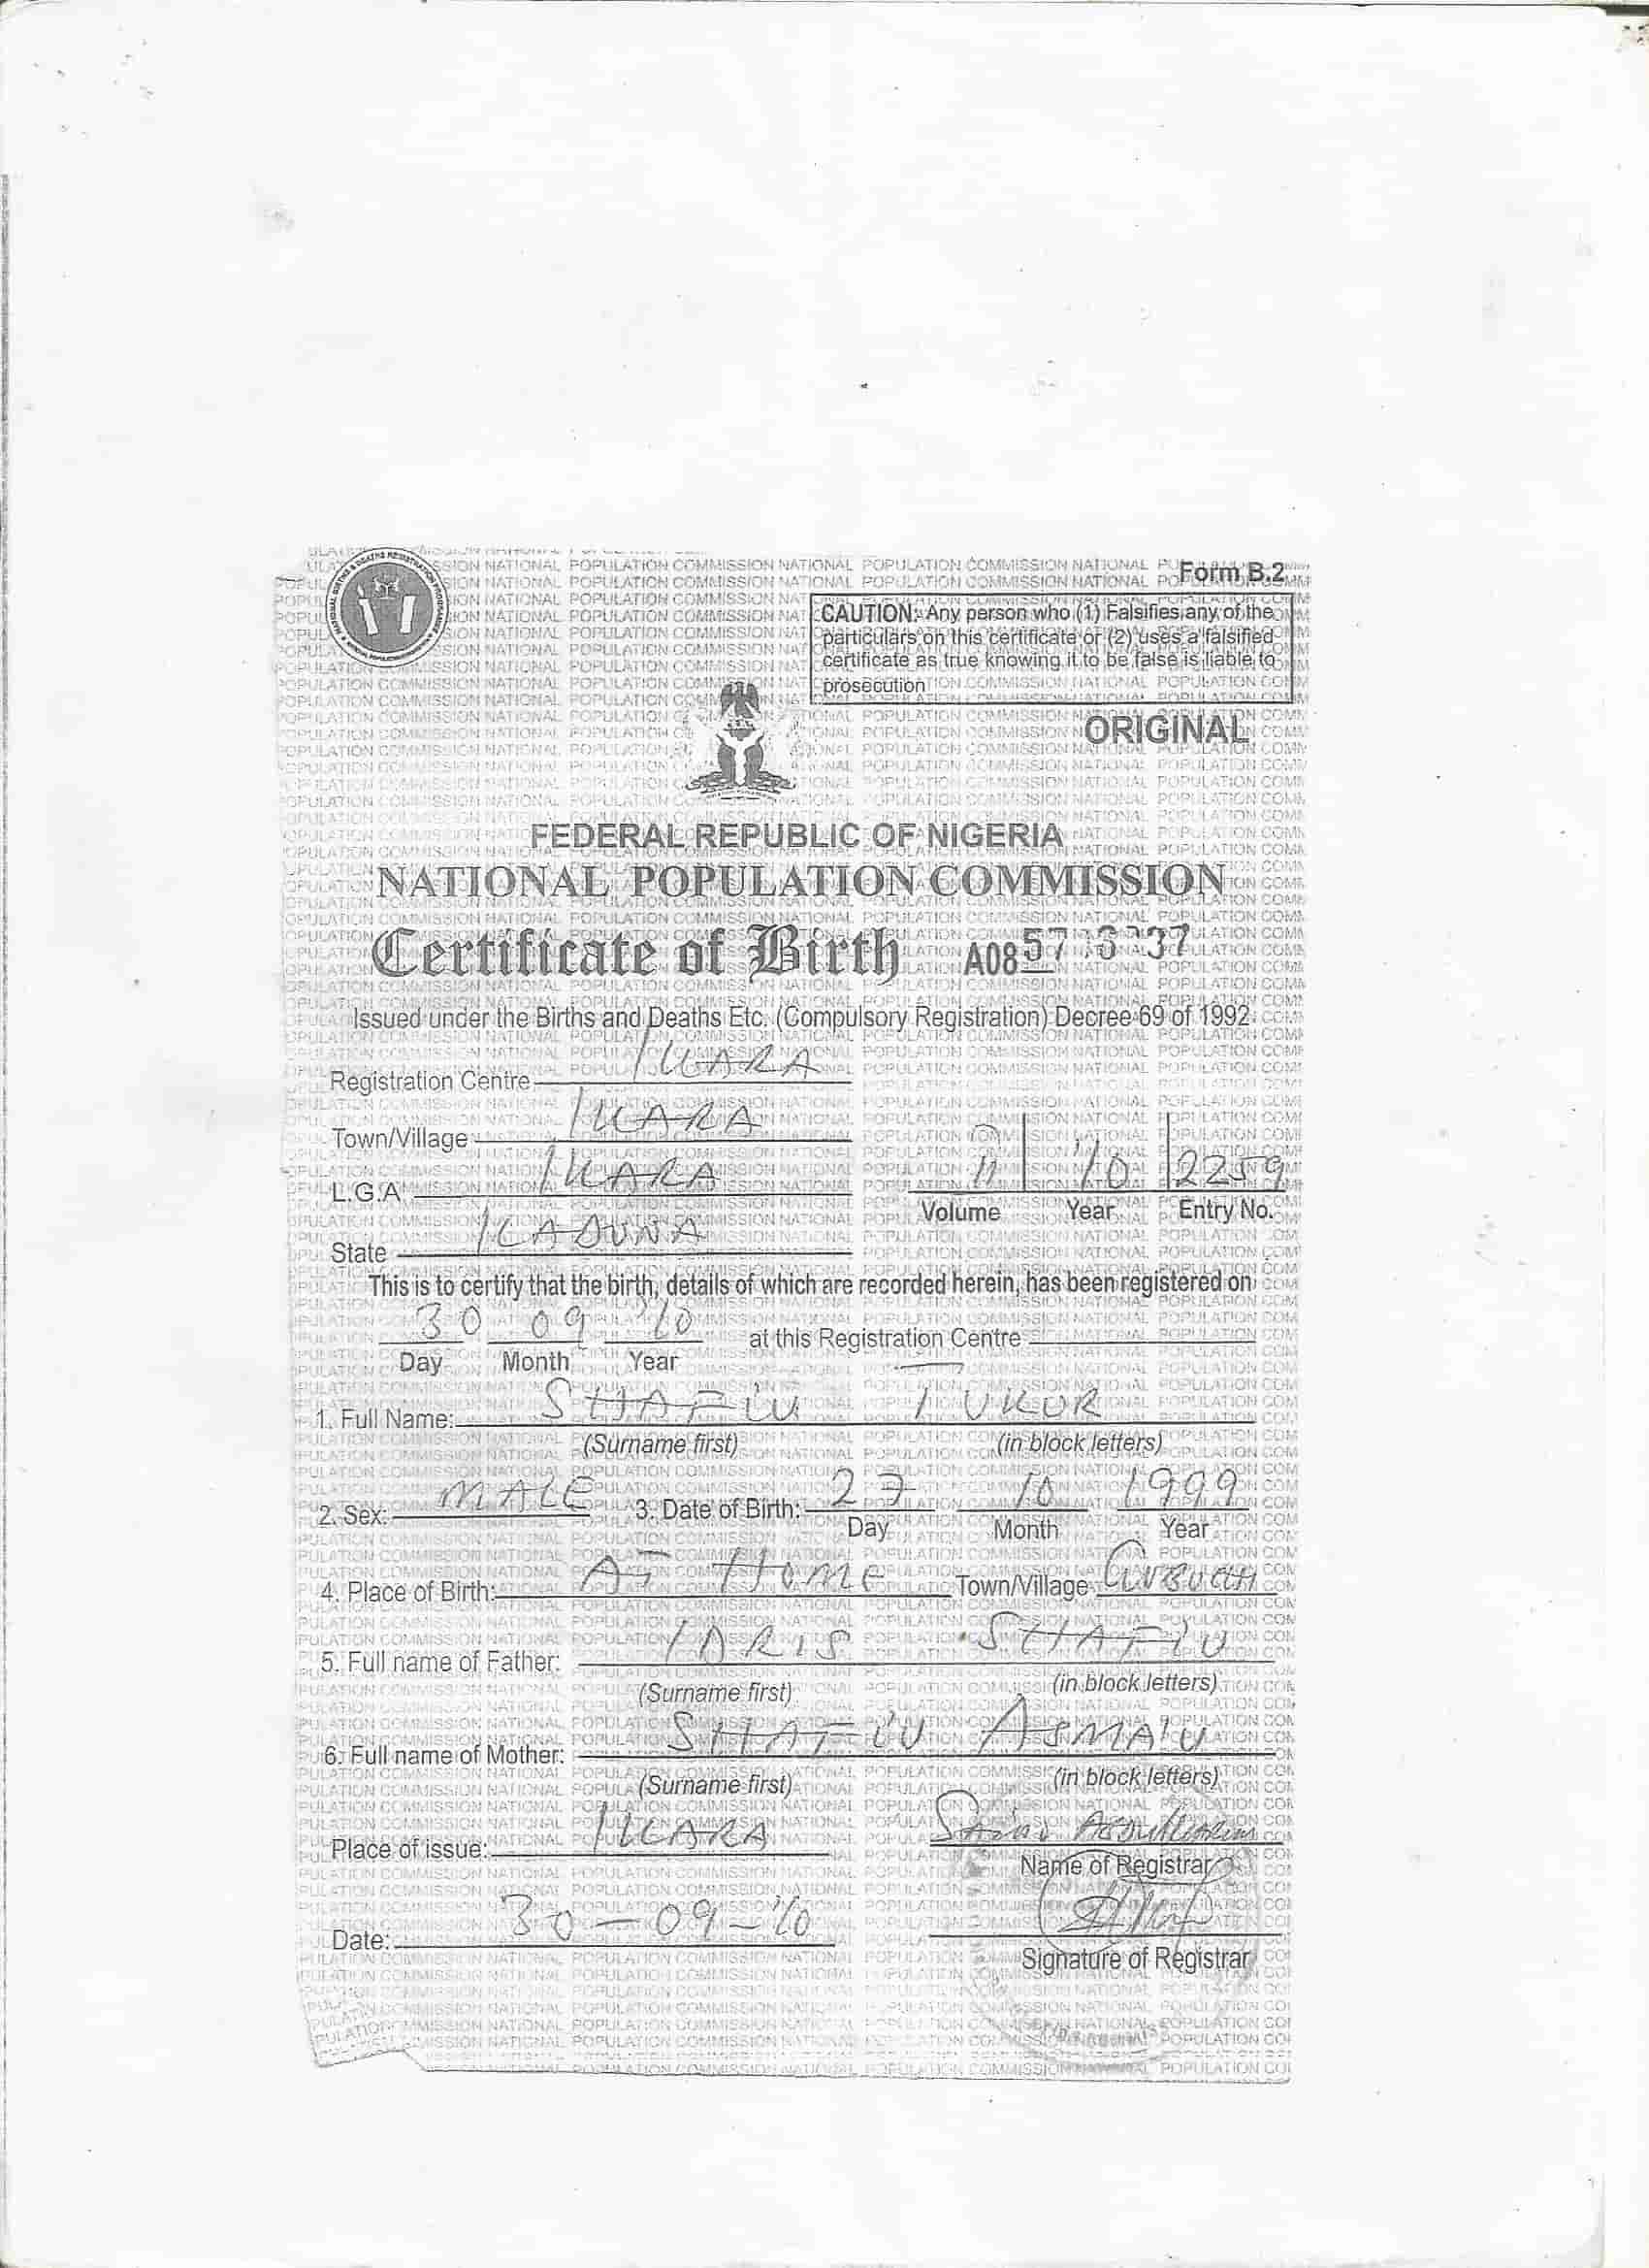 Form B.2
CAUTION: Any person who (1) Falsifies any of the
particulars on this certificate or (2) uses a falsified
certificate as true knowing it to be false is liable to
prosecution
ORIGINAL
FEDERAL REPUBLIC OF NIGERIA
NATIONAL POPULATION COMMISSION
Certificate of Birth A08
Issued under the Births and Deaths Etc. (Compulsory Registration) Decree 69 of 1992
Registration Centre IKARA
Town/Village IKARA
L.G.A IKARA 11 '10 2259
Volume Year Entry No.
State KADUNA
This is to certify that the birth, details of which are recorded herein, has been registered on
30 09 '10 at this Registration Centre
Day Month Year
1. Full Name: SHAFIU TUKUR
(Surname first) (in block letters)
2. Sex: MALE 3. Date of Birth: 27 10 1999
Day Month Year
4. Place of Birth: AT HOME Town/Village
5. Full name of Father: IDRIS SHAFIU
(Surname first) (in block letters)
6. Full name of Mother: SHAFIU ASMA'U
(Surname first) (in block letters)
Place of issue: IKARA
Name of Registrar
Date: 30-09-'10
Signature of Registrar